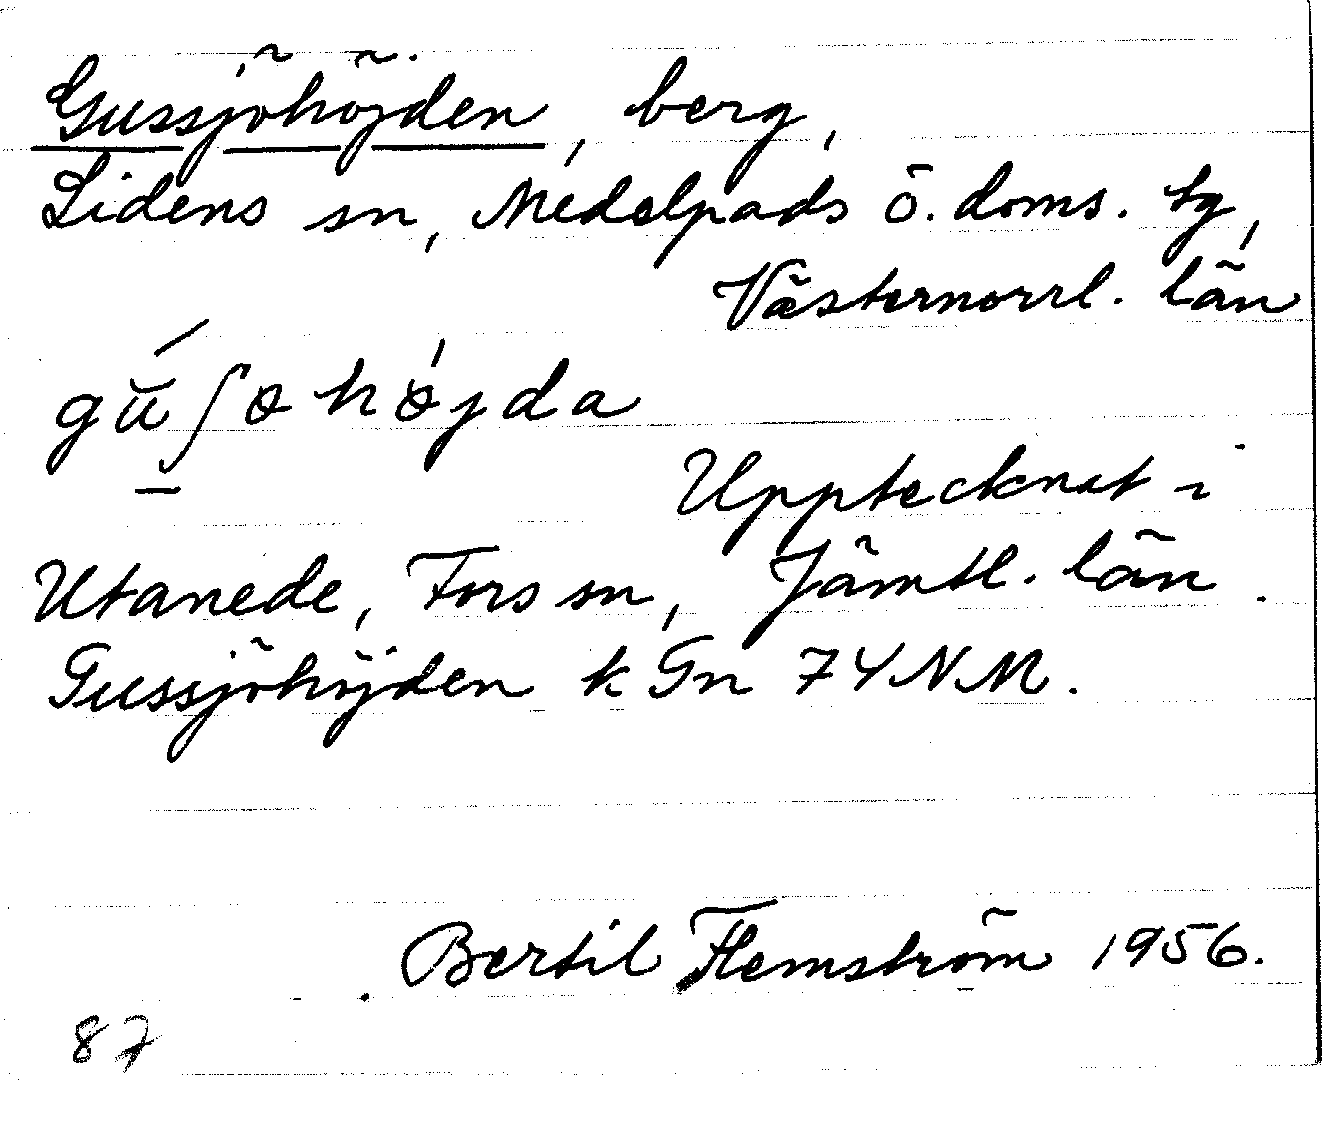 Gussjöhöjden, berg,
Lidens sn, Medelpads ö. doms. tg,
Västernorrl. län
gŭ́ʃøhø̀jda
Upptecknat i
Utanede, Fors sn, Jämtl. län.
Gussjöhöjden k Gn 74NM.
Bertil Flemström 1956.
87